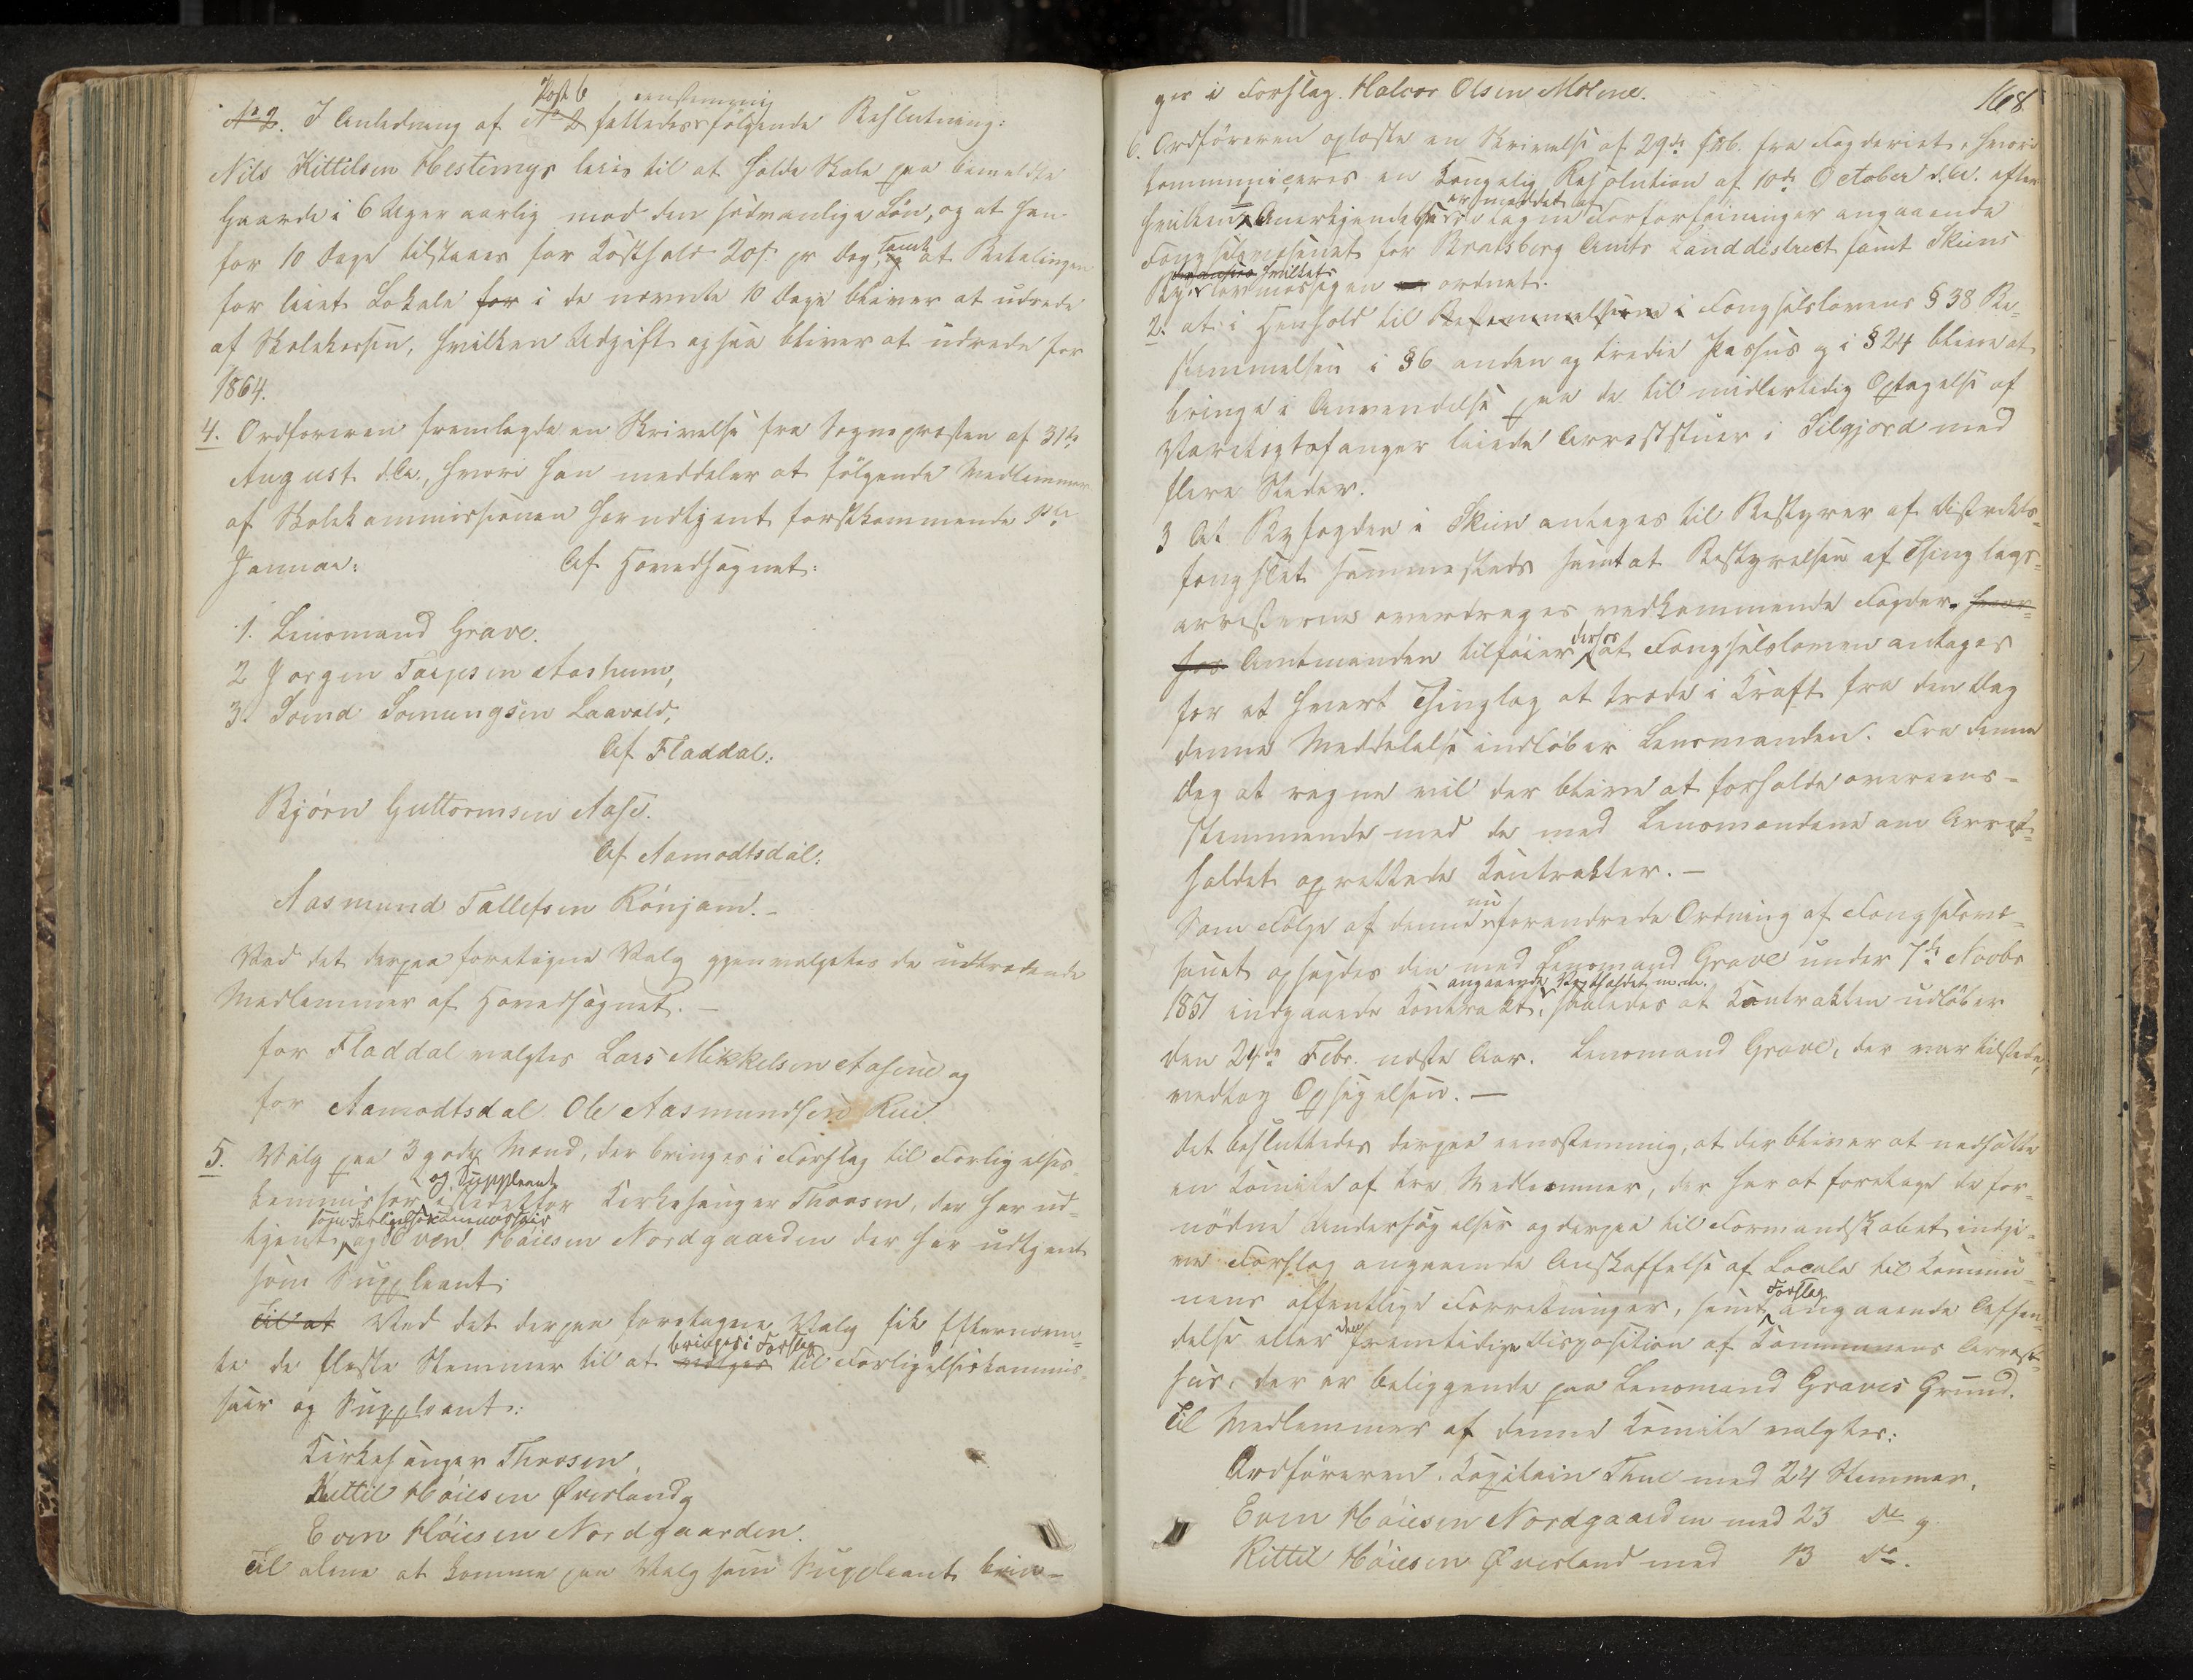 Post 6 eenstemmig
No 2. I Anledning af No 2 fattedes følgende Beslutning:
Nils Kittilsen Hestemyr leies til at holde Skole paa bemeldte
Gaarde i 6 Uger aarlig mod den sedvanlige Løn, og at han
for 10 Dage tilstaaes for Kosthold 20 s. pr Dag, samt og at Betalingen
for leiet Lokale for i de nævnte 10 Dage bliver at udrede
af Skolekassen, hvilken Udgift ogsaa bliver at udrede for
1864.
4. Ordføreren fremlagde en Skrivelse fra Sognepræsten af 31te
August d.A., hvori han meddeler at følgende Medlemmer
af Skolekommissionen har udtjent førstkommende 1ste
Januar: Af Hovedsognet:
1. Lensmand Grave.
2 Jørgen Tarjesen Aashum,
3. Sveind Somungsen Laavald,
Af Fladdal:
Bjørn Guttormsen Aase.
Af Aamodtsdal:
Aasmund Tallefsen Rønjom.-
Ved det derpaa foretagne Valg gjenvalgtes de udtrædende
Medlemmer af Hovedsognet.-
for Fladdal valgtes Lars Mikkelsen Aasene og
for Aamodtsdal Ole Aasmundsen Rue.
5. Valg paa 3 gode Mænd, der bringes i Forslag til Forligelses-
og Suppleant
kommissær istedetfor Kirkesanger Thorsen, der har ud-
som Forligelseskommissair
tjent, og Even Høiesen Nordgaarden der har udtjent
som Suppleant.
Til at Ved det derpaa foretagne Valg fik Efternævn-
bringes i Forslag
te de fleste Stemmer til at vælges til Forligelseskommis-
sair og Suppleant:
Kirkesanger Thorsen,
Kittil Høiesen Øverland og
Even Høiesen Nordgaarden.
Til alene at komme paa Valg som Suppleant brin-
168
ges i Forslag Halvor Olsen Moline.
6. Ordføreren oplæste en Skrivelse af 29de f.M. fra Fogderiet, hvori
kommuniceres en Kongelig Resolution af 10de October d.A. efter
er meddelt af
hvilken Anerkjendelse tagne Forføininger angaaende
Fængselsvæsenet for Bratsberg Amts Landdistrict samt Skiens
hvilket
By, lovmæssigen ordnet.
2. at i Henhold til Bestemmelserne i Fængselslovens § 38 Be-
stemmelsen i § 6 anden og tredie Passus og i § 24 blive at
bringe i Anvendelse paa de til midlertidig Optagelse af
Varetægtsfanger leiede Arreststuer i Silgjord med
flere Steder.
3 At Byfogden i Skien antages til Bestyrer af Distrikts-
fængslet sammesteds samt at Bestyrelsen af Thinglags-
arresterne overdrages vedkommende Fogder. hvor-
derhos
hos Amtmanden tilføier at Fængselsloven antages
for et hvert Thinglag at træde i Kraft fra den Dag
denne Meddelelse indløber Lensmanden. Fra denne
Dag at regne vil der blive at forholde overeens-
stemmende med de med Lensmændene om Arrest-
holdet oprettede Kontrakter.-
nu
Som Følge af denne forandrede Ordning af Fængselsvæ-
senet opsagdes den med Lensmand Grave under 7de Novbr
angaaende Vagtholdet m.m.
1851 indgaaede Kontrakt, saaledes at Kontrakten udløber
den 24de Febr. næste Aar. Lensmand Grave, der var tilstede,
vedtog Opsigelsen.-
Det besluttedes derpaa eenstemmig, at der bliver at nedsætte
en Komite af tre Medlemmer, der har at foretage de for-
nødne Undersøgelser og derpaa til Formandskabet indgi-
ve Forslag angaaende Anskaffelse af Locale til Kommu-
Forslag
nens offentlige Forretninger, samt angaaende Afhæn-
delse eller den fremtidige Disposition af Kommunens Arrest-
hus, der er beliggende paa Lensmand Graves Grund.
Til Medlemmer af denne Komite valgtes:
Ordføreren, Kapitain Thue med 24 Stemmer,
Even Høiesen Nordgaarden med 23 Do og
Kittil Høiesen Øverland med 13 Do.